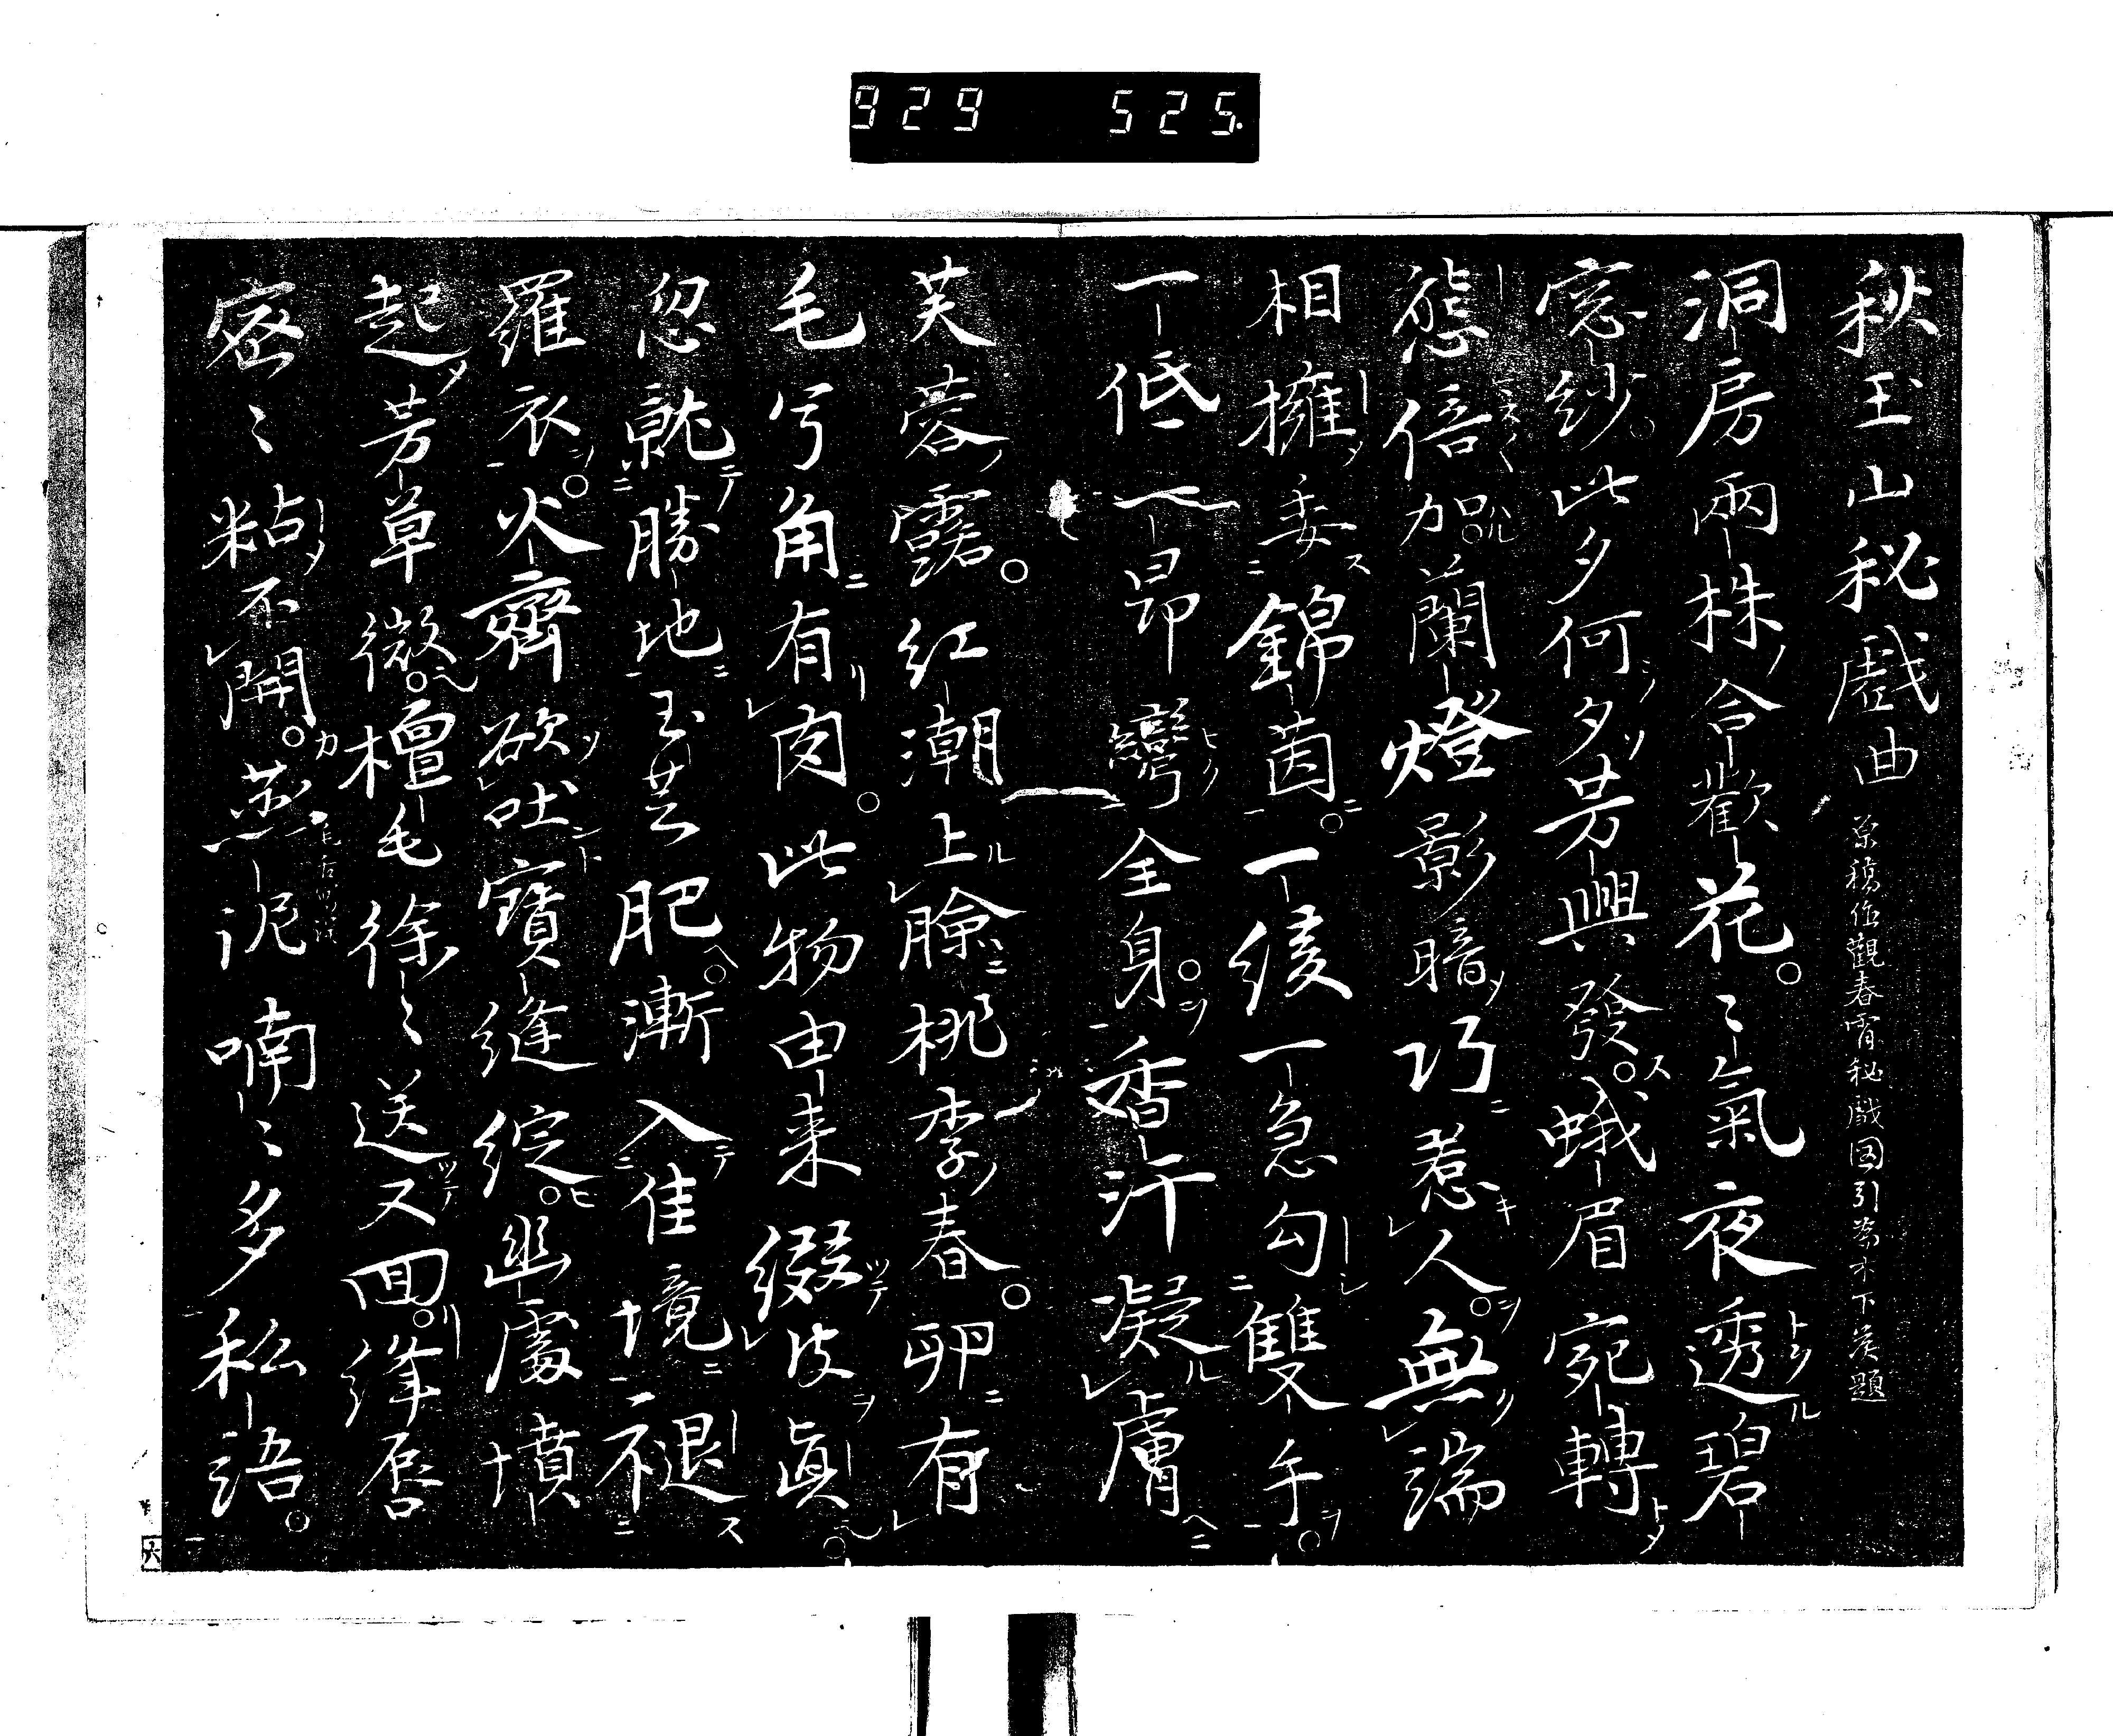 929 525.
秋玉山秘戯曲 原稿作觀春宵秘戯図引 題
洞房兩株合歡花。〻氣夜透碧
窓紗。此夕何夕芳興發。蛾眉宛轉
態倍加。蘭燈影暗巧惹人。無端
相擁委錦茵。一綾一急勾雙手。
一低一昂彎全身。香汗凝膚
芙蓉露。紅潮上臉桃李春。卵有
毛兮角有肉。此物由来綴皮眞。
忽就勝地玉芒肥。漸入佳境褪
羅衣。火齊欲吐寶縫綻。幽處墳
起芳草微。檀毛徐〻送又回。絳唇
密〻粘不開。燕泥喃〻多私語。
六